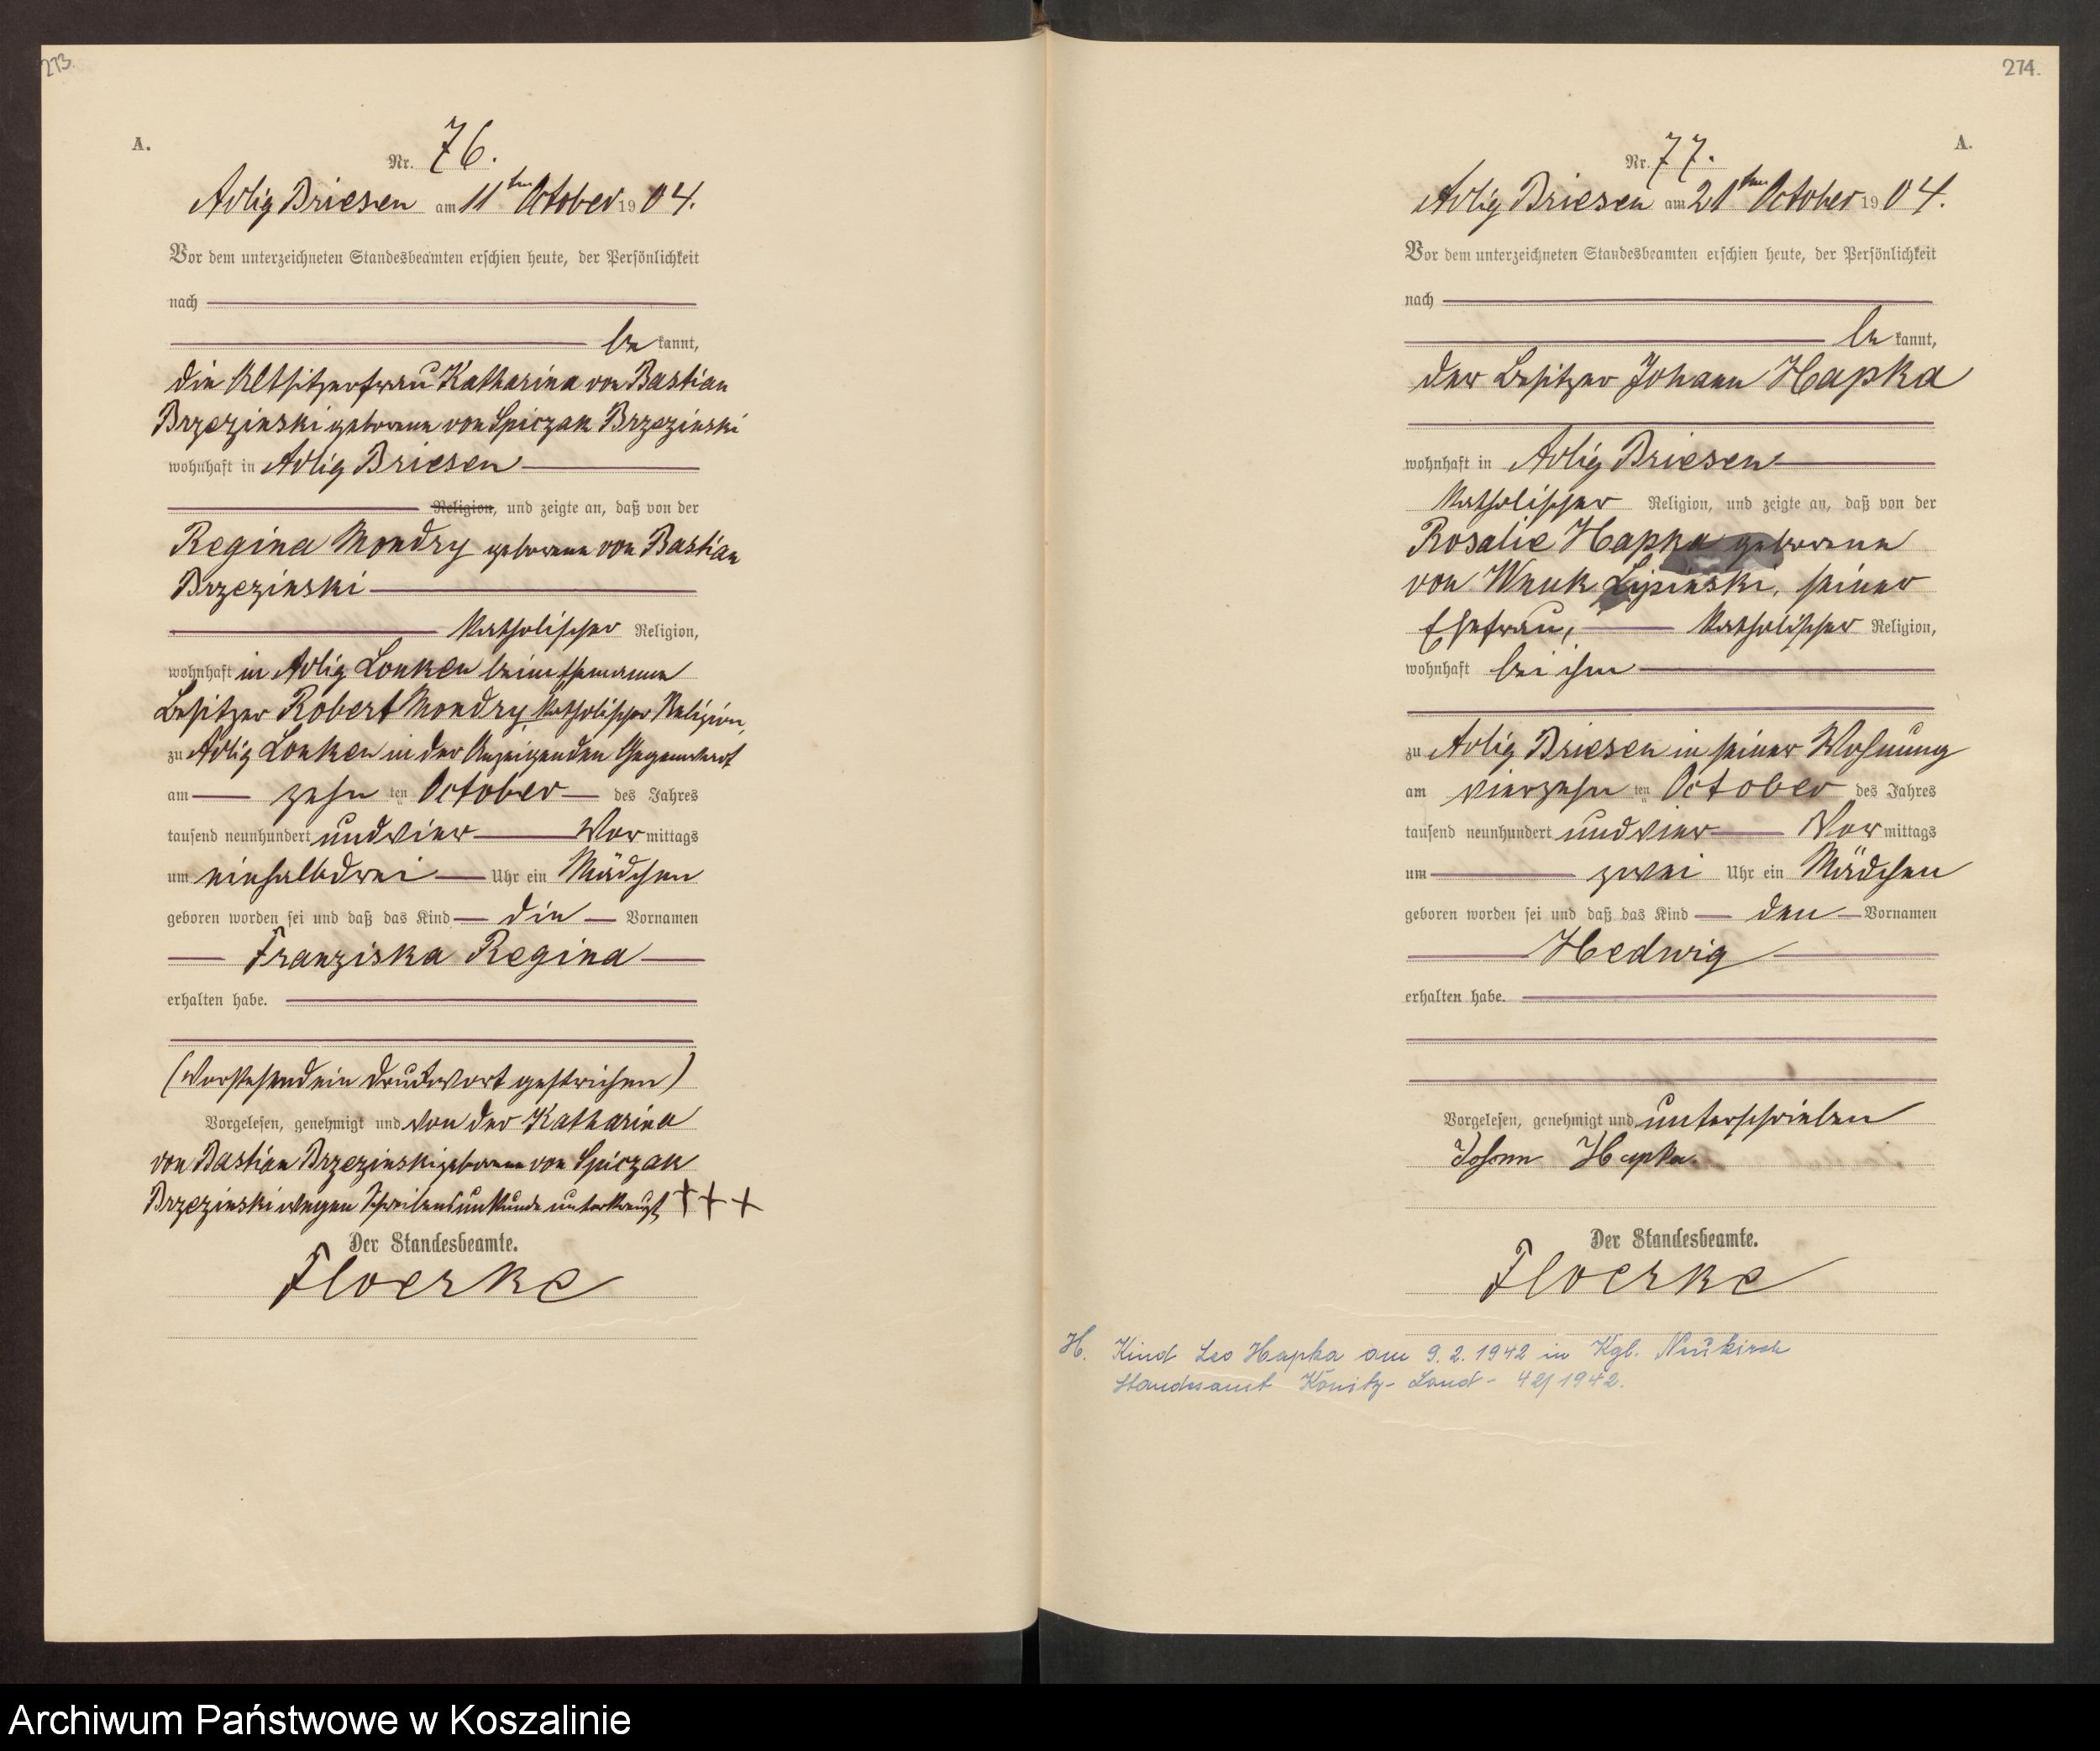 273.
A.
Nr. 76.
Adlig Briesen am 11ten October 1904.
Vor dem unterzeichneten Standesbeamten erschien heute, der Persönlichkeit
nach
be kannt,
die Altsitzerfrau Katharina von Bastian
Brzezinski geborene von Spiczak Brzezinski
wohnhaft in Adlig Briesen
Religion, und zeigte an, daß von der
Regina Mondry geborene von Bastian
Brzezinski
katholischer Religion,
wohnhaft in Adlig Lonken beim Ehemanne
Besitzer Robert Mondry, katholischer Religion,
zu Adlig Lonken in der Anzeigenden Gegenwart
am zehn ten October des Jahres
tausend neunhundert und vier Vor mittags
um einhalbdrei Uhr ein Mädchen
geboren worden sei und daß das Kind die Vornamen
Franziska Regina
erhalten habe.
(Vorstehend ein Druckwort gestrichen)
Vorgelesen, genehmigt und von der Katharina
von Bastian Brzezinski geborene von Spiczak
Brzezinski wegen Schreibensunkunde unterkreuzt, +++
Der Standesbeamte.
Floerke
274.
A.
Nr. 77.
Adlig Briesen am 20ten October 1904.
Vor dem unterzeichneten Standesbeamten erschien heute, der Persönlichkeit
nach
be kannt,
der Besitzer Johann Hapka
wohnhaft in Adlig Briesen
katholischer Religion, und zeigte an, daß von der
Rosalie Hapka geborene
von Wnuk Lipinski, seiner
Ehefrau, katholischer Religion,
wohnhaft bei ihm
zu Adlig Briesen in seiner Wohnung
am vierzehn ten October des Jahres
tausend neunhundert und vier Vor mittags
um zwei Uhr ein Mädchen
geboren worden sei und daß das Kind den Vornamen
Hedwig
erhalten habe.
Vorgelesen, genehmigt und unterschrieben
Johann Hapka
Der Standesbeamte.
Floerke
H. Kind Leo Hapka am 9.2.1942 in Kgl. Neukirch
Standesamt Konitz-Land - 42/1942.
Archiwum Państwowe w Koszalinie